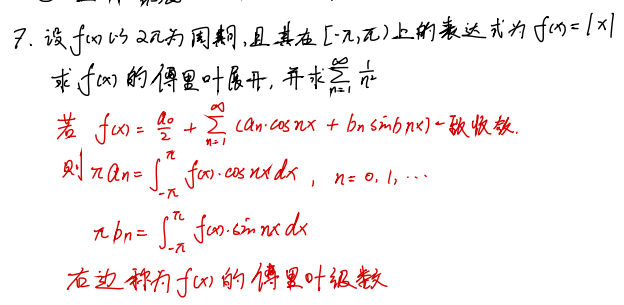 7. 设f(x)以2π为周期,且其在[-π,π)上的表达式为f(x)=|x|
求f(x)的傅里叶展开,并求∑_{n=1}^{∞} 1/n²
若 f(x) = a₀/2 + ∑_{n=1}^{∞} (an·cosnx + bn sinbnx)一致收敛.
则 πan = ∫_{-π}^{π} f(x)·cosnxdx , n=0,1,⋯
πbn = ∫_{-π}^{π} f(x)·sinnxdx
右边称为f(x)的傅里叶级数